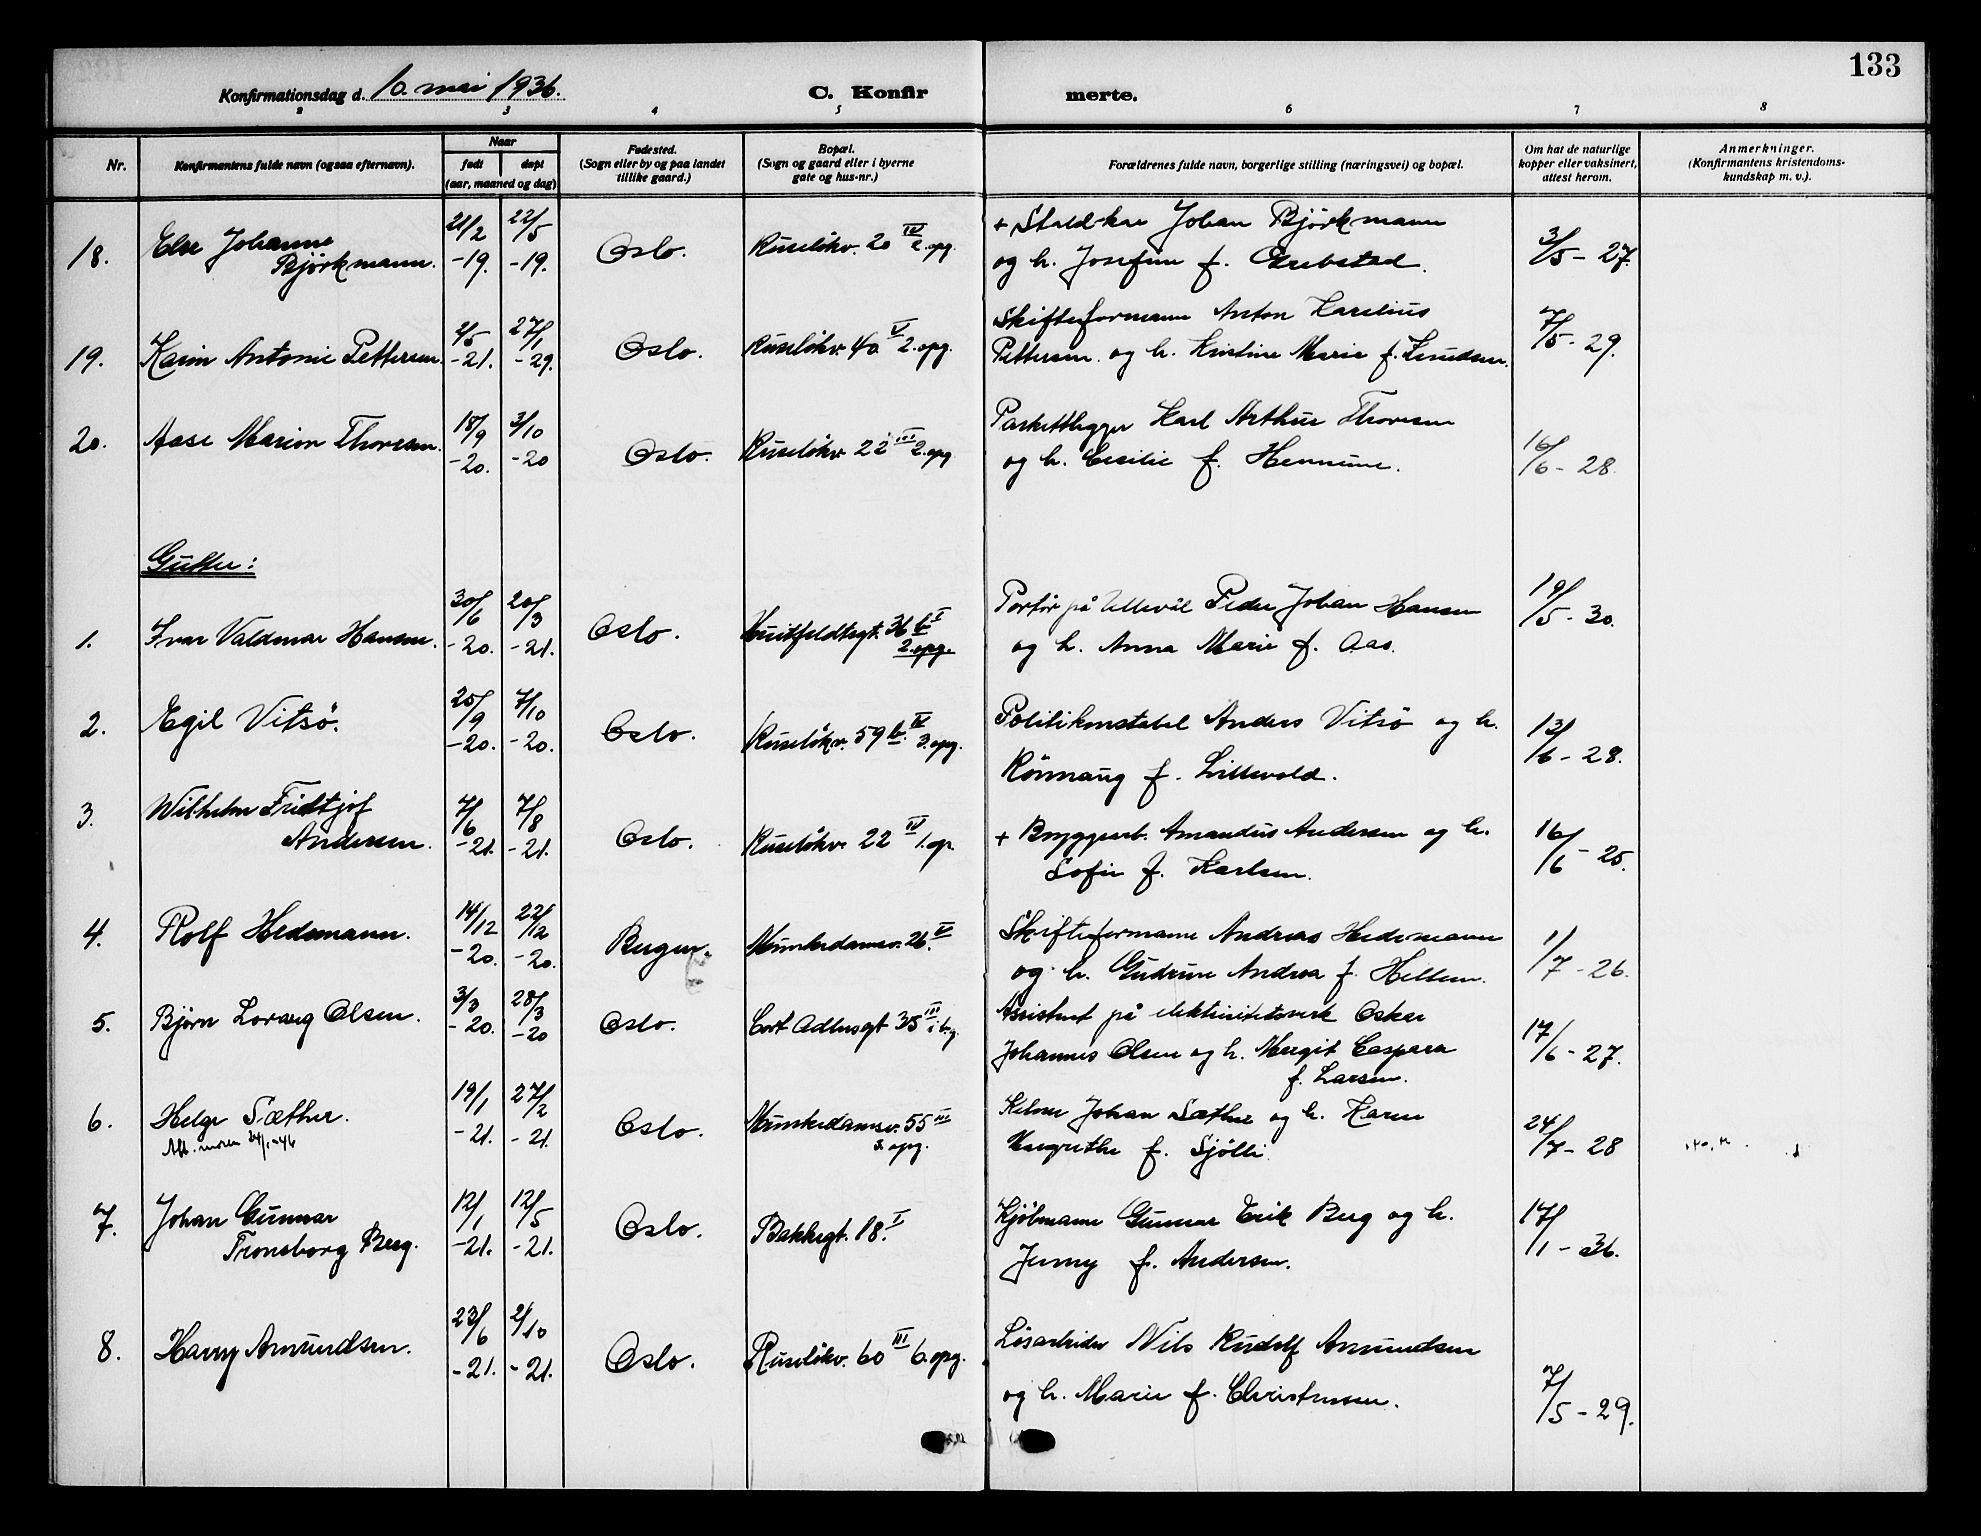 133
Konfirmationsdag d. 10. mai 1936.
C. Konfirmerte.
2 3 4 5 6 7 8
Nr.
Konfirmantens fulde navn (ogsaa efternavn).
Naar
født døpt
(aar, maaned og dag)
Fødested.
(Sogn eller by og paa landet
tillike gaard.)
Bopæl.
(Sogn og gaard eller i byerne
gate og hus-nr.)
Forældrenes fulde navn, borgerlige stilling (næringsvei) og bopæl.
Om hat de naturlige
kopper eller vaksinert,
attest herom.
Anmerkninger.
(Konfirmantens kristendoms-
kundskap m. v.).
18. Else Johanne
Bjørkmann.
21/2 -19. 22/5 -19.
Oslo.
Ruseløkv. 20 IV 2. opg.
+ Staldkar Johan Bjørkmann
og h. Josefine f.
3/5 - 27.
19. Karin Antonie Pettersen.
2/5 -21. 27/1 -29.
Oslo.
Ruseløkv. 40 V 2. opg.
Skifteformann Anton Karelius
Pettersen og h. Kristine Marie f. Knudsen.
7/5 - 29.
20. Aase Marion Thoresen.
18/9 -20. 3/10 -20
Oslo.
Ruseløkv. 22 III 2. opg
Parkettlegger Karl Arthur Thoresen
og h. Cecilie f. Hennum.
16/6 - 28.
Gutter:
1. Ivar Valdemar Hansen.
30/6 -20. 20/3 -21.
Oslo.
Huitfeldtsgt. 36 b I
2. opg.
Portør på Ullevål Peder Johan Hansen
og h. Anna Marie f. Aas.
19/5 - 30.
2. Egil Vitsø.
25/9 -20. 7/10 -20.
Oslo.
Ruseløkv. 59 b. IV 3. opg.
Politikonstabel Anders Vitsø og h.
Rönnaug f. Lillevold.
13/6 - 28.
3. Wilhelm Fridtjof
Andersen.
4/6 -21. 7/8 -21.
Oslo.
Ruseløkv. 22 IV 1. op.
+ Bryggearb. Amandus Andersen og h.
Sofie f. Karlsen.
16/6 - 25.
4. Rolf Hedemann.
14/12 -20. 22/12 -20.
Bergen.
Munkedamsv. 26. IV
Skifteformann Andreas Hedemann
og h. Gudrun Andrea f. Hellem.
1/7 - 26.
5. Bjørn Lorang Olsen.
3/3 -20. 28/3 -20
Oslo.
Cort Adlersgt 35 III i b.g.
Assistent på elektrisitetsverk Oskar
Johannes Olsen og h. Margit Caspara
f. Larsen.
17/6 - 27.
6. Helge Sæther.
Att. moren 24/1-46
19/1 -21. 27/2 -21.
Oslo.
Munkedamsv. 55 III
3. opg.
Kelner Johan Sæther og h. Karen
Margrethe f. Sjølli
24/7 - 28
7. Johan Gunnar
Tronsborg Berg.
12/1 -21. 12/5 -21.
Oslo.
Bakkegt. 18. I
Kjøbmann Gunnar Erik Berg og h.
Jenny f. Andersen.
17/1 - 36.
8. Harry Amundsen.
23/6 -21. 2/10 -21.
Oslo.
Ruseløkv. 60 III 6. opg.
Løsarbeider Nils Rudolf Amundsen
og h. Marie f. Christensen.
7/5 - 29.